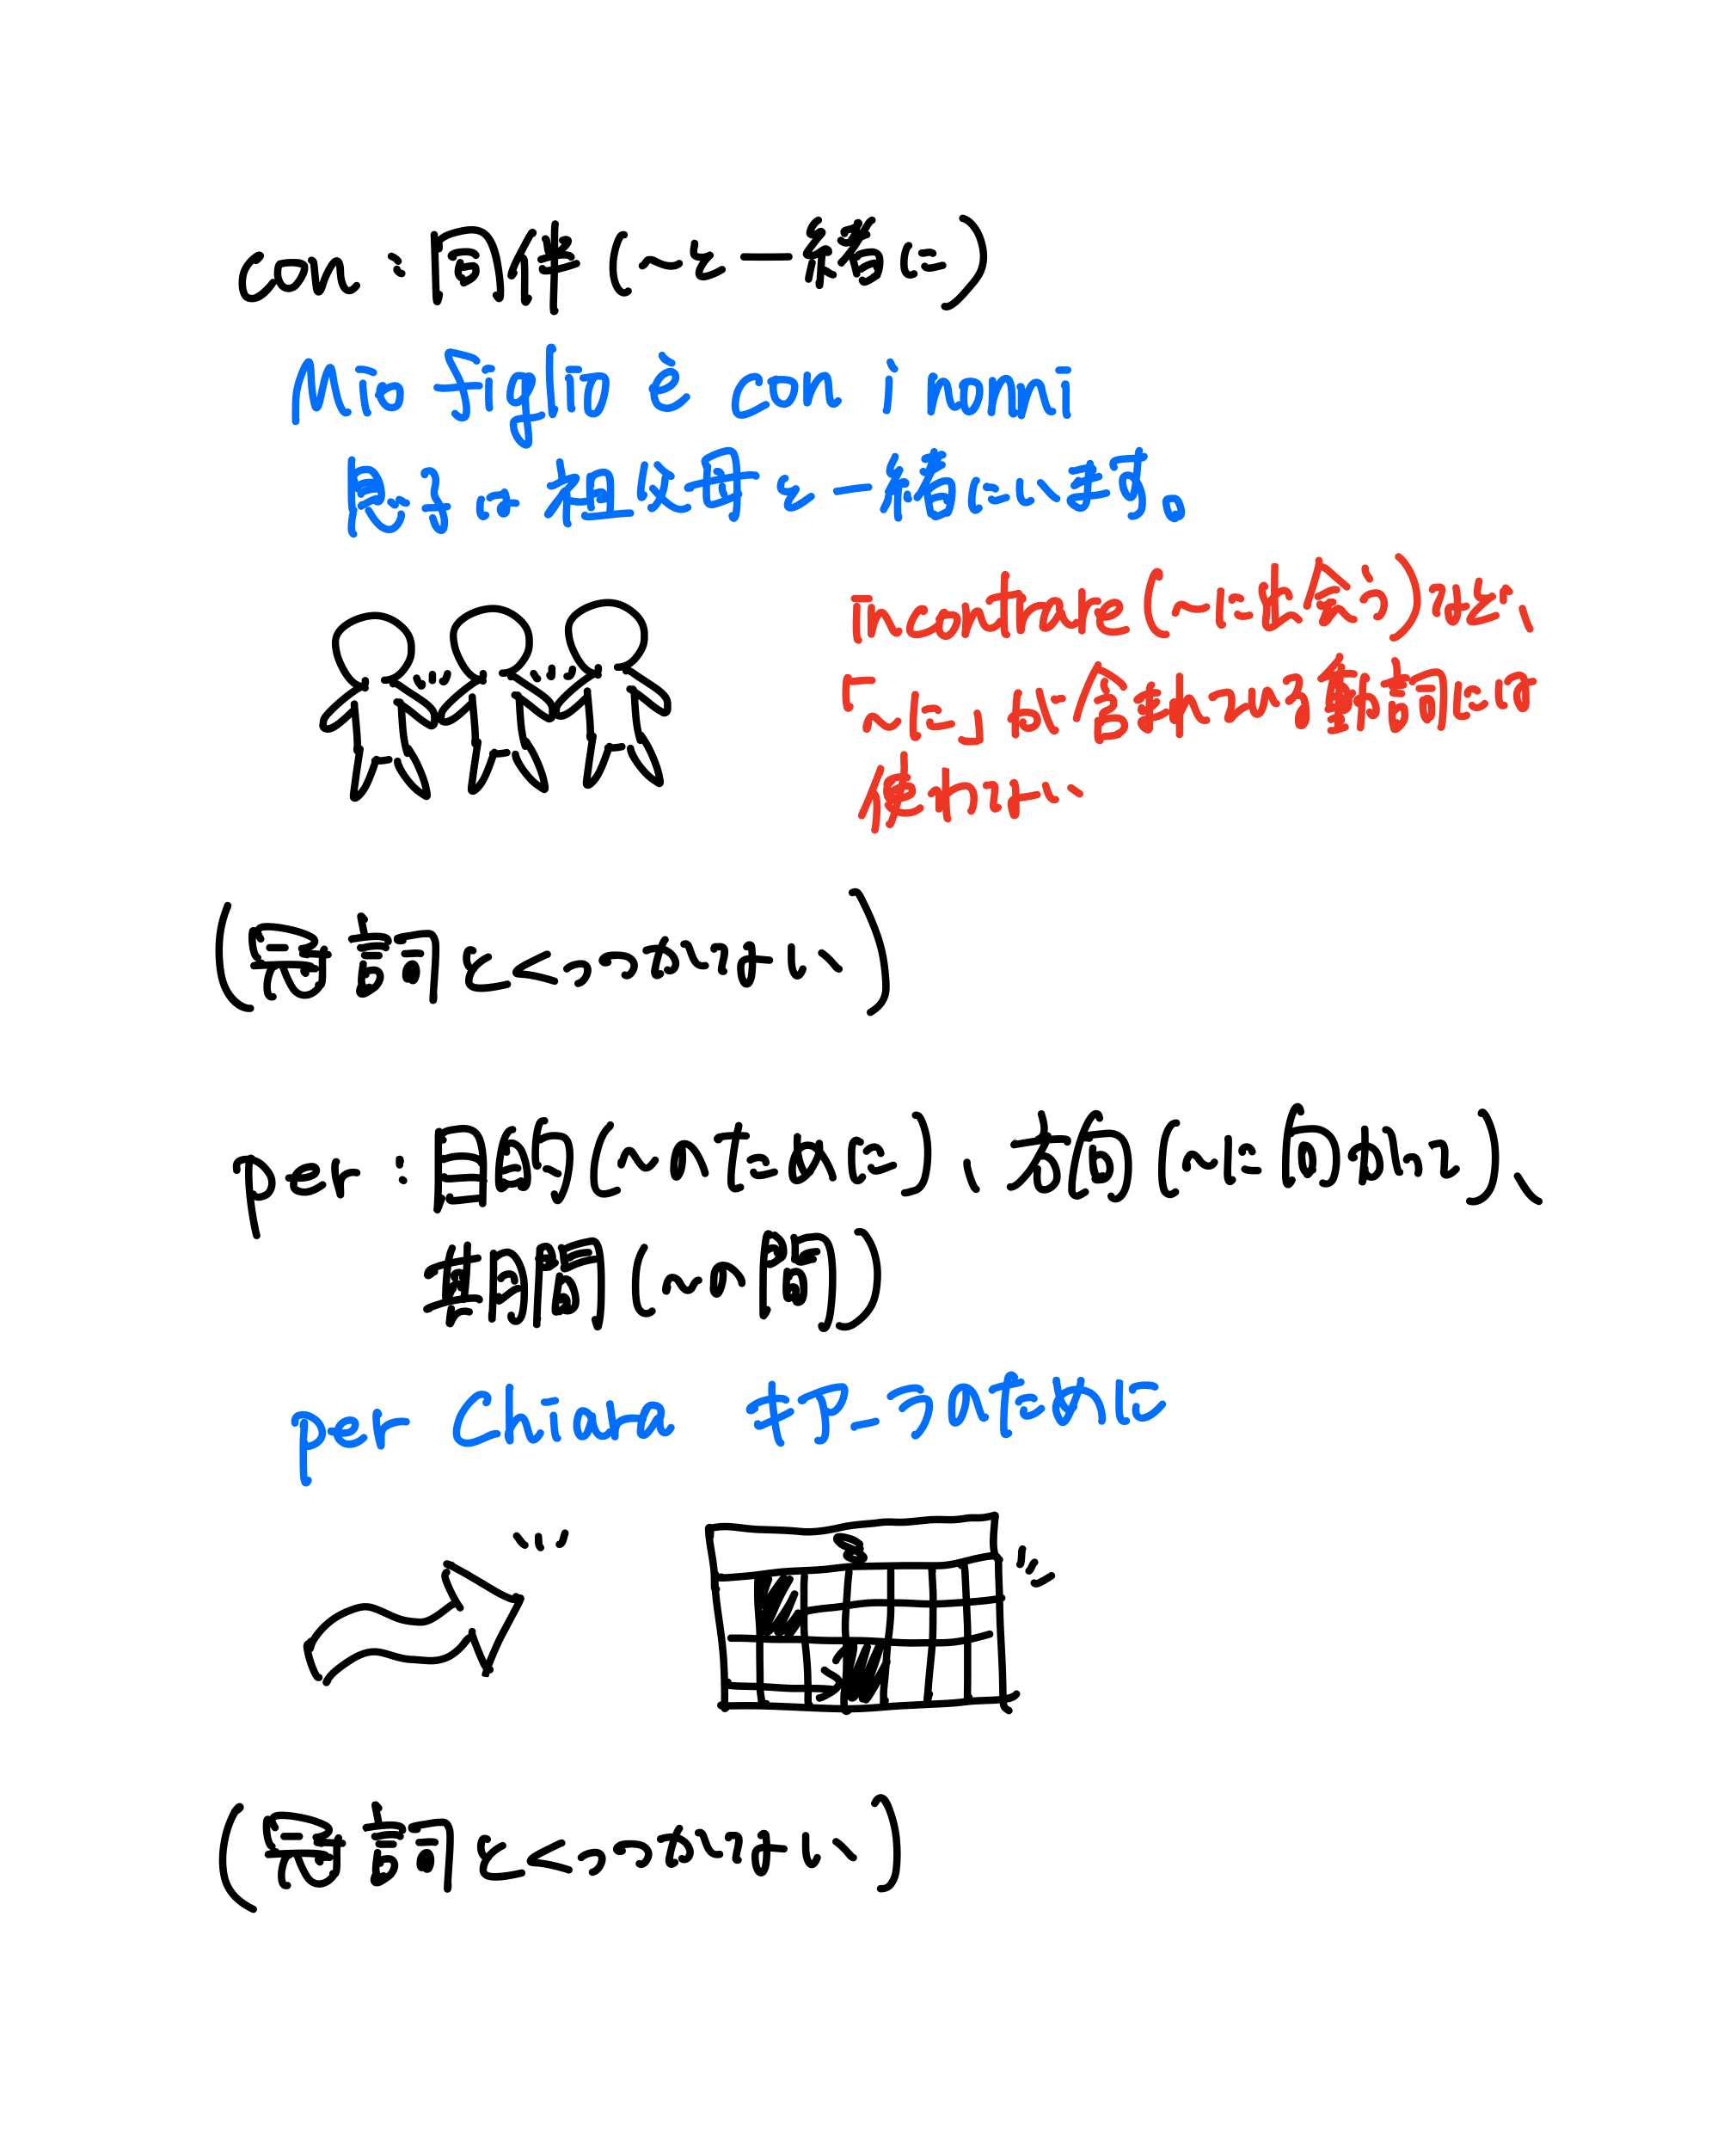 con : 同伴 (〜と一緒に)
Mio figlio è con i nonni
息子は祖父母と一緒にいます。
incontrare (〜に出会う) など、
「〜に」が含まれている動詞には
使わない
(冠詞とくっつかない)
per : 目的 (〜のために)、方向 (〜に向かって)、
期間 (〜の間)
per Chiara キアーラのために
(冠詞とくっつかない)